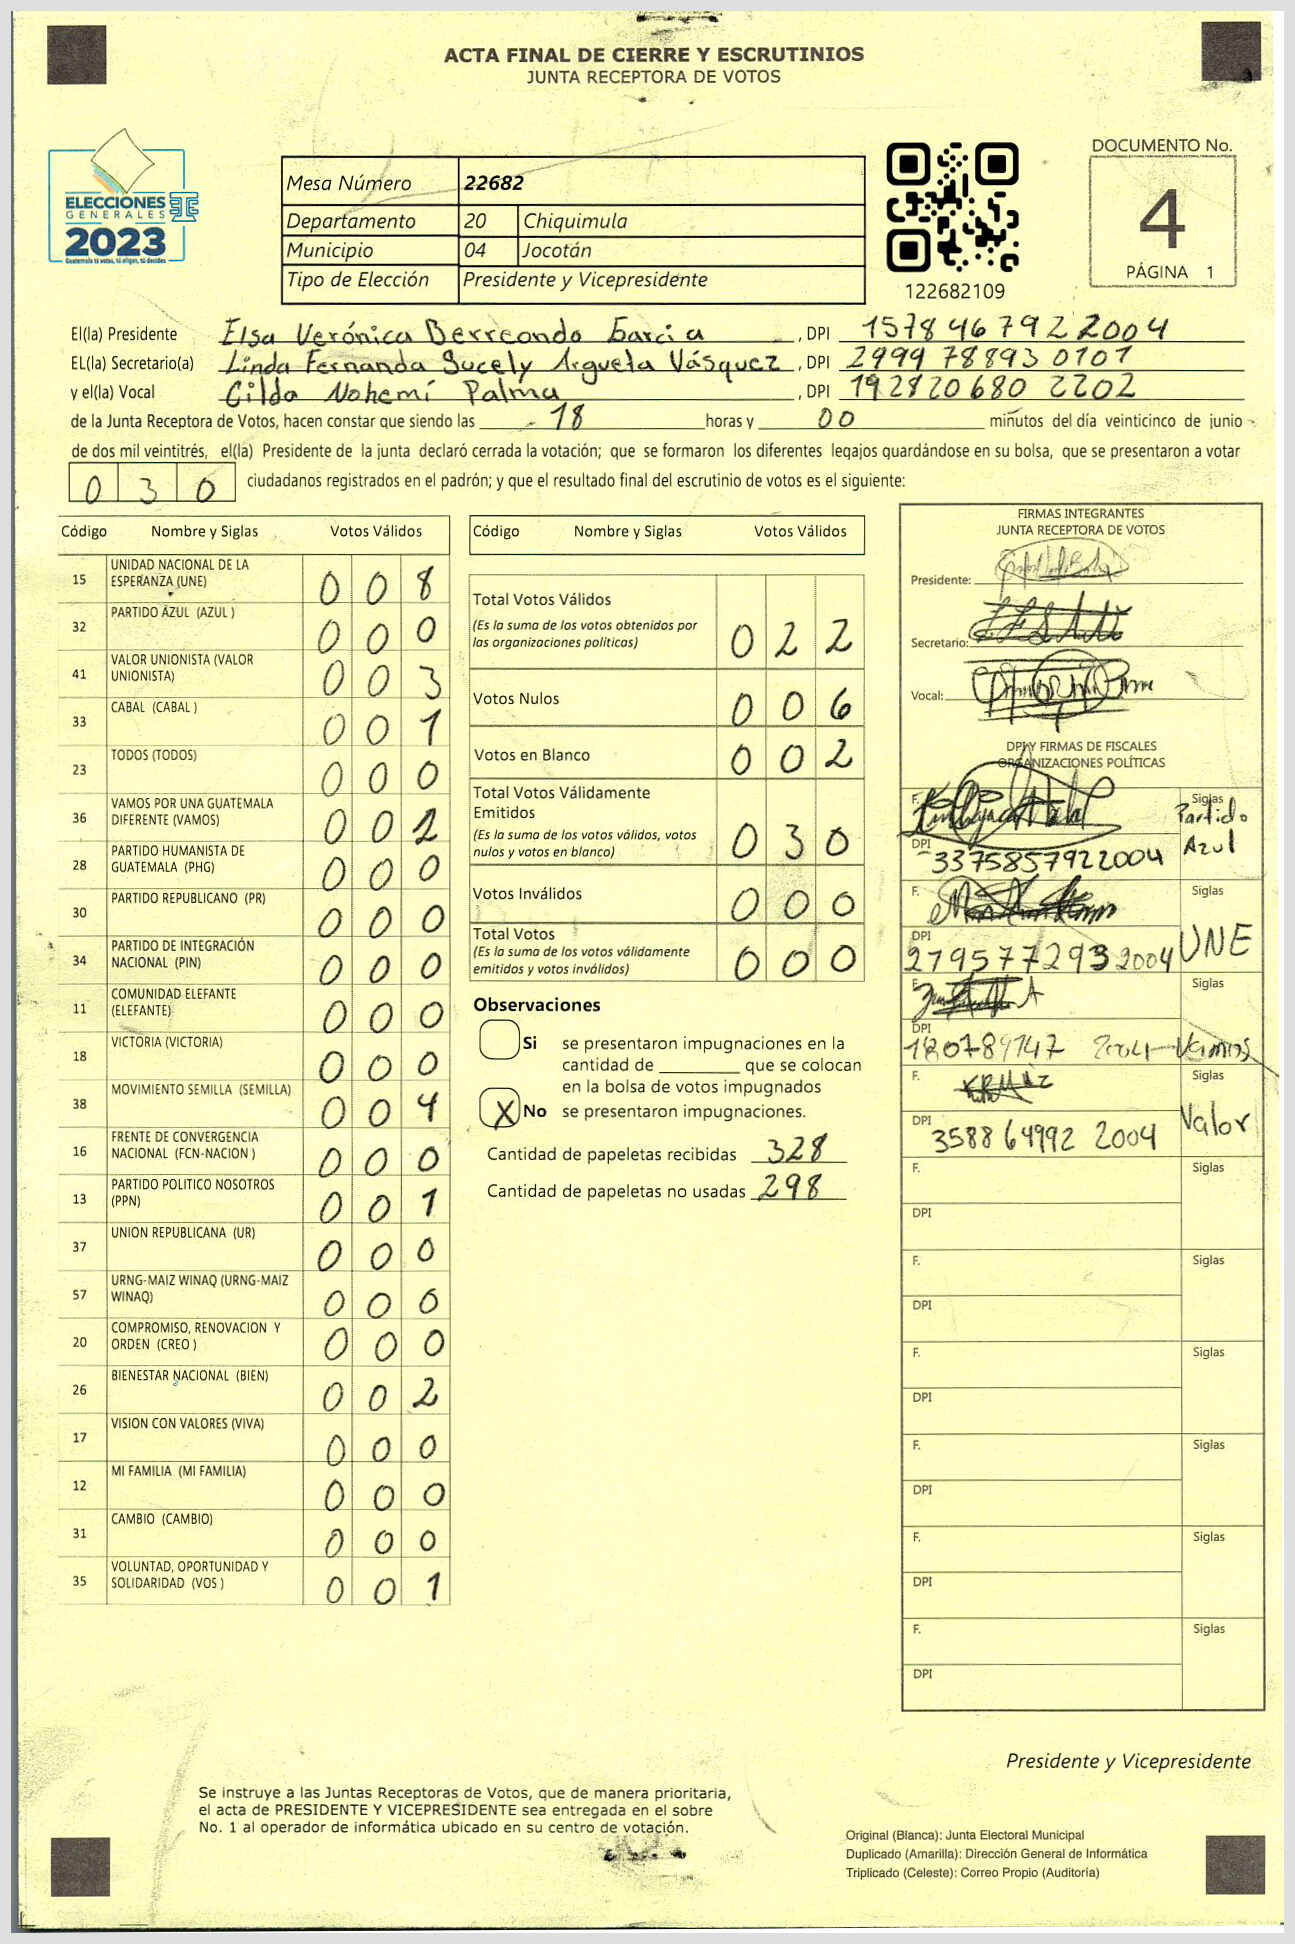 ACTA FINAL DE CIERRE Y ESCRUTINIOS
JUNTA RECEPTORA DE VOTOS
ELECCIONES
GENERALES
2023
Guatemala tú votas, tú eliges, tú decides
Mesa Número 22682
Departamento 20 Chiquimula
Municipio 04 Jocotán
Tipo de Elección Presidente y Vicepresidente
122682109
DOCUMENTO No.
4
PÁGINA 1
El(la) Presidente Elsa Verónica Berreondo Garcia, DPI 1578467922004
EL(la) Secretario(a) Linda Fernanda Sucely Argueta Vásquez, DPI 2999 78893 0101
y el(la) Vocal Gilda Nohemí Palma, DPI 192820680 2202
de la Junta Receptora de Votos, hacen constar que siendo las 18 horas y 00 minutos del día veinticinco de junio
de dos mil veintitrés, el(la) Presidente de la junta declaró cerrada la votación; que se formaron los diferentes legajos guardándose en su bolsa, que se presentaron a votar
030 ciudadanos registrados en el padrón; y que el resultado final del escrutinio de votos es el siguiente:
Código Nombre y Siglas Votos Válidos
15 UNIDAD NACIONAL DE LA ESPERANZA (UNE) 008
32 PARTIDO AZUL (AZUL ) 000
41 VALOR UNIONISTA (VALOR UNIONISTA) 003
33 CABAL (CABAL ) 001
23 TODOS (TODOS) 000
36 VAMOS POR UNA GUATEMALA DIFERENTE (VAMOS) 002
28 PARTIDO HUMANISTA DE GUATEMALA (PHG) 000
30 PARTIDO REPUBLICANO (PR) 000
34 PARTIDO DE INTEGRACIÓN NACIONAL (PIN) 000
11 COMUNIDAD ELEFANTE (ELEFANTE) 000
18 VICTORIA (VICTORIA) 000
38 MOVIMIENTO SEMILLA (SEMILLA) 004
16 FRENTE DE CONVERGENCIA NACIONAL (FCN-NACION ) 000
13 PARTIDO POLITICO NOSOTROS (PPN) 001
37 UNION REPUBLICANA (UR) 000
57 URNG-MAIZ WINAQ (URNG-MAIZ WINAQ) 000
20 COMPROMISO, RENOVACION Y ORDEN (CREO ) 000
26 BIENESTAR NACIONAL (BIEN) 002
17 VISION CON VALORES (VIVA) 000
12 MI FAMILIA (MI FAMILIA) 000
31 CAMBIO (CAMBIO) 000
35 VOLUNTAD, OPORTUNIDAD Y SOLIDARIDAD (VOS ) 001
Código Nombre y Siglas Votos Válidos
Total Votos Válidos 022
(Es la suma de los votos obtenidos por
las organizaciones políticas)
Votos Nulos 006
Votos en Blanco 002
Total Votos Válidamente
Emitidos 030
(Es la suma de los votos válidos, votos
nulos y votos en blanco)
Votos Inválidos 000
Total Votos 000
(Es la suma de los votos válidamente
emitidos y votos inválidos)
Observaciones
Si se presentaron impugnaciones en la
cantidad de ________ que se colocan
en la bolsa de votos impugnados
X No se presentaron impugnaciones.
Cantidad de papeletas recibidas 328
Cantidad de papeletas no usadas 298
FIRMAS INTEGRANTES
JUNTA RECEPTORA DE VOTOS
Presidente:
Secretario:
Vocal:
DPI Y FIRMAS DE FISCALES
ORGANIZACIONES POLÍTICAS
F. Siglas Partido Azul
DPI 3375857922004
F. Siglas UNE
DPI 2795772932004
F. Siglas Vamos
DPI 2004
F. Siglas Valor
DPI 3588 64992 2004
F. Siglas
DPI
F. Siglas
DPI
F. Siglas
DPI
F. Siglas
DPI
F. Siglas
DPI
F. Siglas
DPI
Presidente y Vicepresidente
Se instruye a las Juntas Receptoras de Votos, que de manera prioritaria,
el acta de PRESIDENTE Y VICEPRESIDENTE sea entregada en el sobre
No. 1 al operador de informática ubicado en su centro de votación.
Original (Blanca): Junta Electoral Municipal
Duplicado (Amarilla): Dirección General de Informática
Triplicado (Celeste): Correo Propio (Auditoría)